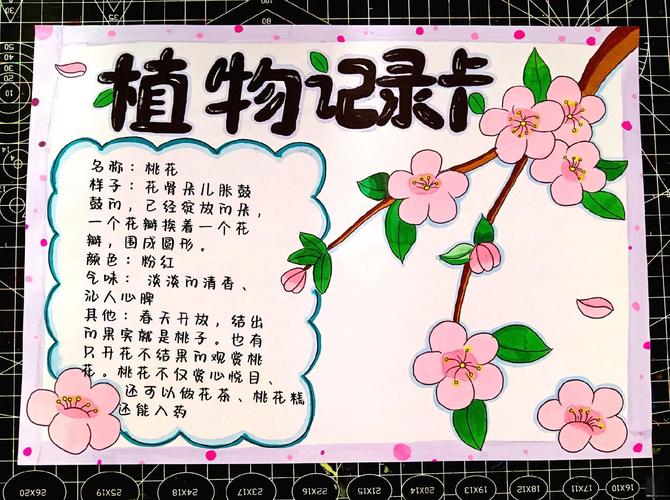 植物记录卡
名称：桃花
样子：花骨朵儿胀鼓
鼓的，已经绽放的朵，
一个花瓣挨着一个花
瓣，围成圆形。
颜色：粉红
气味：淡淡的清香、
沁人心脾
其他：春天开放，结出
的果实就是桃子。也有
只开花不结果的观赏桃
花。桃花不仅赏心悦目、
还可以做花茶、桃花糕
还能入药
26X20
25X19
24X18
23X17
22X16
21X15
20X14
19X13
18X12
17X11
16X10